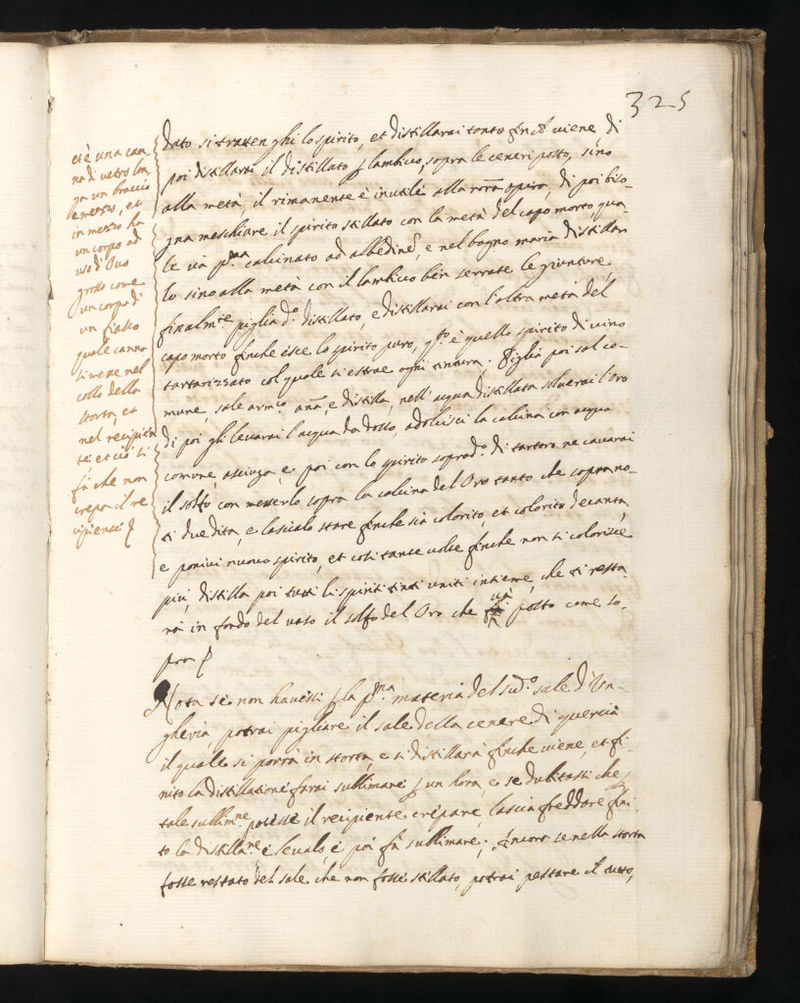 325
et è una can
na di vetro lon
ga un braccio
e mezzo, et
in mezzo ha
un corpo ad
uso d'Ovo
grosso come
un corpo di
un fiasco
quale canna
si mette nel
collo della
storta, et
nel recipien
te, et ciò si
fà che non
crepa il re
cipiente
dato si trattenghi lo spirito, et distillarai tanto finche viene di
poi distillarai il distillato p lambico, sopra le ceneri posto, sino
alla metà, il rimanente è inutile alla nrã opera, di poi biso-
gna meschiare il spirito stillato con la metà del capo morto, qua-
le và pma calcinato ad albedine, e nel bagno maria distillar-
lo sino alla metà con il lambico ben serrate le gionture,
finalmte piglia do distillato, e distillarai con l'altra metà del
capo morto finche esce lo spirito puro, qto è quello spirito di vino
tartarizzato col quale si estrae ogni tintura. Piglia poi sal co-
mune, sale armco anã, e distilla, nell'acqua distillata solverai l'oro
di poi gli levarai l'acqua da dosso, adolcisci la calcina con acqua
comune, asciuga, e poi con lo spirito sopradº di tartaro ne cavarai
il solfo con metterlo sopra la calcina del Oro tanto che soprano-
ti due dita, e lascialo stare finche sia colorito, et colorito decanta,
e ponivi nuovo spirito, et cosi tante volte finche non si colorisce
più, distilla poi tutti li spiriti tinti uniti insieme, che ti resta-
rà in fondo del vaso il solfo del Oro che và posto come so-
pra
Nota se non havesti p la pma materia del sudº sale d'Un-
gheria, potrai pigliare il sale della cenere di quercia
il quale si porrà in storta, e si distillarà finche viene, et fi-
nito la distillatione farai sullimare p un hora, e se dubitassi che p
tale sullimne potesse il recipiente crepare, lascia freddare fini-
to la distillane e levalo, e poi fà sullimare; Ancora se nella storta
fosse restato del sale che non fosse stillato, potrai pestare il tutto,